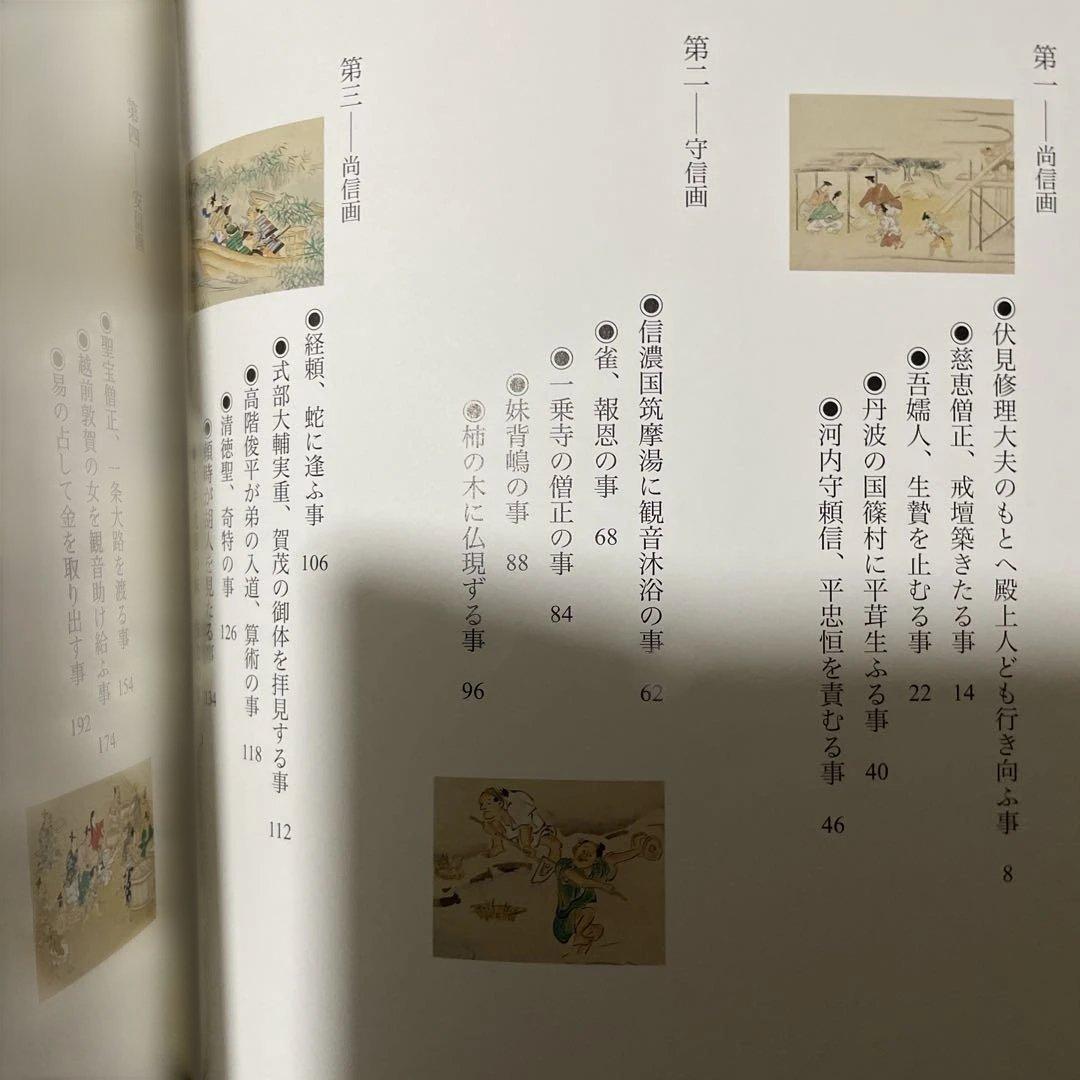 第一──尚信画
◉伏見修理大夫のもとへ殿上人ども行き向ふ事 8
◉慈恵僧正、戒壇築きたる事 14
◉吾嬬人、生贄を止むる事 22
◉丹波の国篠村に平茸生ふる事 40
◉河内守頼信、平忠恒を責むる事 46
第二──守信画
◉信濃国筑摩湯に観音沐浴の事 62
◉雀、報恩の事 68
◉一乗寺の僧正の事 84
◉妹背嶋の事 88
◉柿の木に仏現ずる事 96
第三──尚信画
◉経頼、蛇に逢ふ事 106
◉式部大輔実重、賀茂の御体を拝見する事 112
◉高階俊平が弟の入道、算術の事 118
◉清徳聖、奇特の事 126
◉頼時が胡人を見たる事 134
第四──安信画
◉聖宝僧正、一条大路を渡る事 154
◉越前敦賀の女を観音助け給ふ事 174
◉易の占して金を取り出す事 192